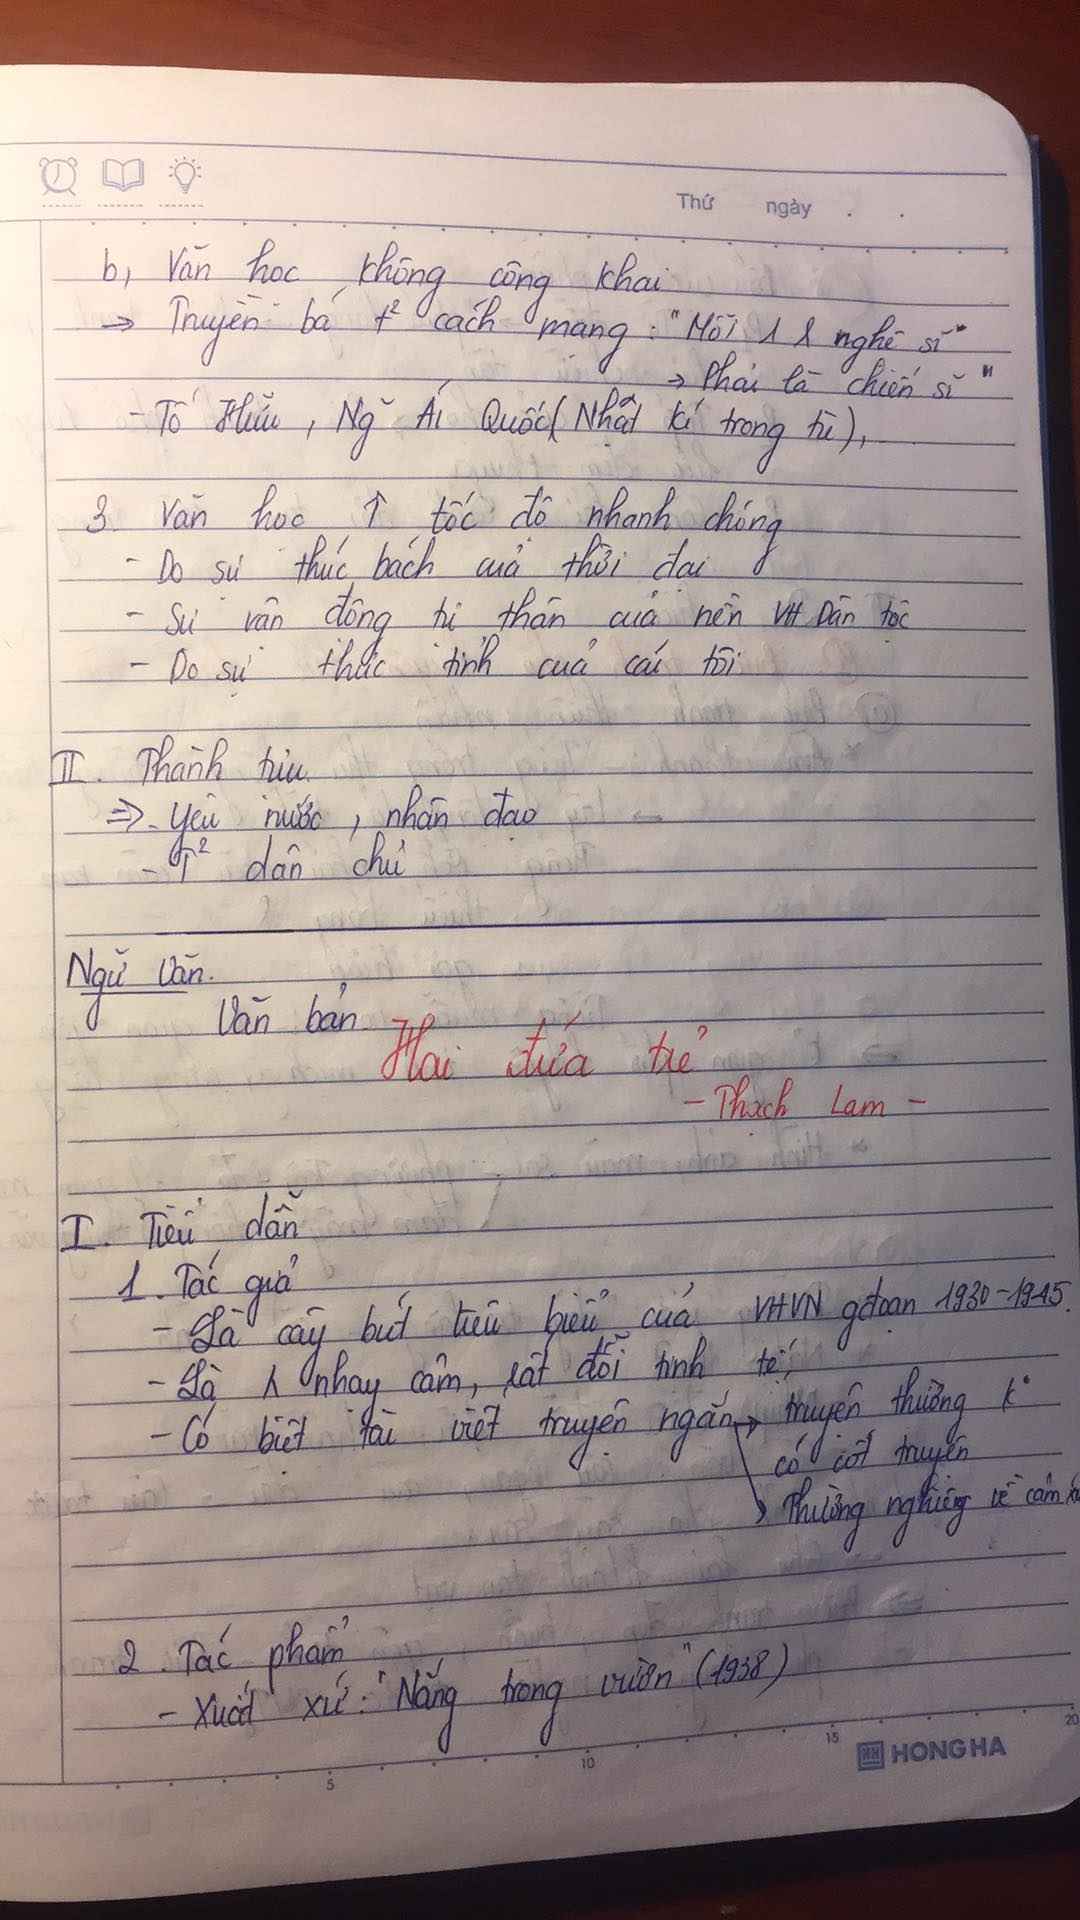 Thứ ngày . .
b, Văn học không công khai
→ Truyền bá t² cách mạng: "Mỗi 1 & nghệ sĩ"
→ Phải là chiến sĩ "
- Tố Hữu, Ng~ Ái Quốc (Nhật kí trong tù),
3. Văn học ↑ tốc độ nhanh chóng
- Do sự thúc bách của thời đại
- Sự vận động tự thân của nền VH Dân tộc
- Do sự thức tỉnh của cái tôi
II. Thành tựu
⇒ - Yêu nước, nhân đạo
- T² dân chủ
Ngữ Văn.
Văn bản
Hai đứa trẻ
- Thạch Lam -
I. Tiểu dẫn
1. Tác giả
- Là cây bút tiêu biểu của VHVN gđoạn 1930-1945.
- Là nhạy cảm, rất đỗi tinh tế,
- Có biệt tài viết truyện ngắn → truyện thường k°
có cốt truyện
→ Thường nghiêng về cảm
2. Tác phẩm
- Xuất xứ: "Nắng trong vườn" (1938)
5 10 15 20
HONG HA